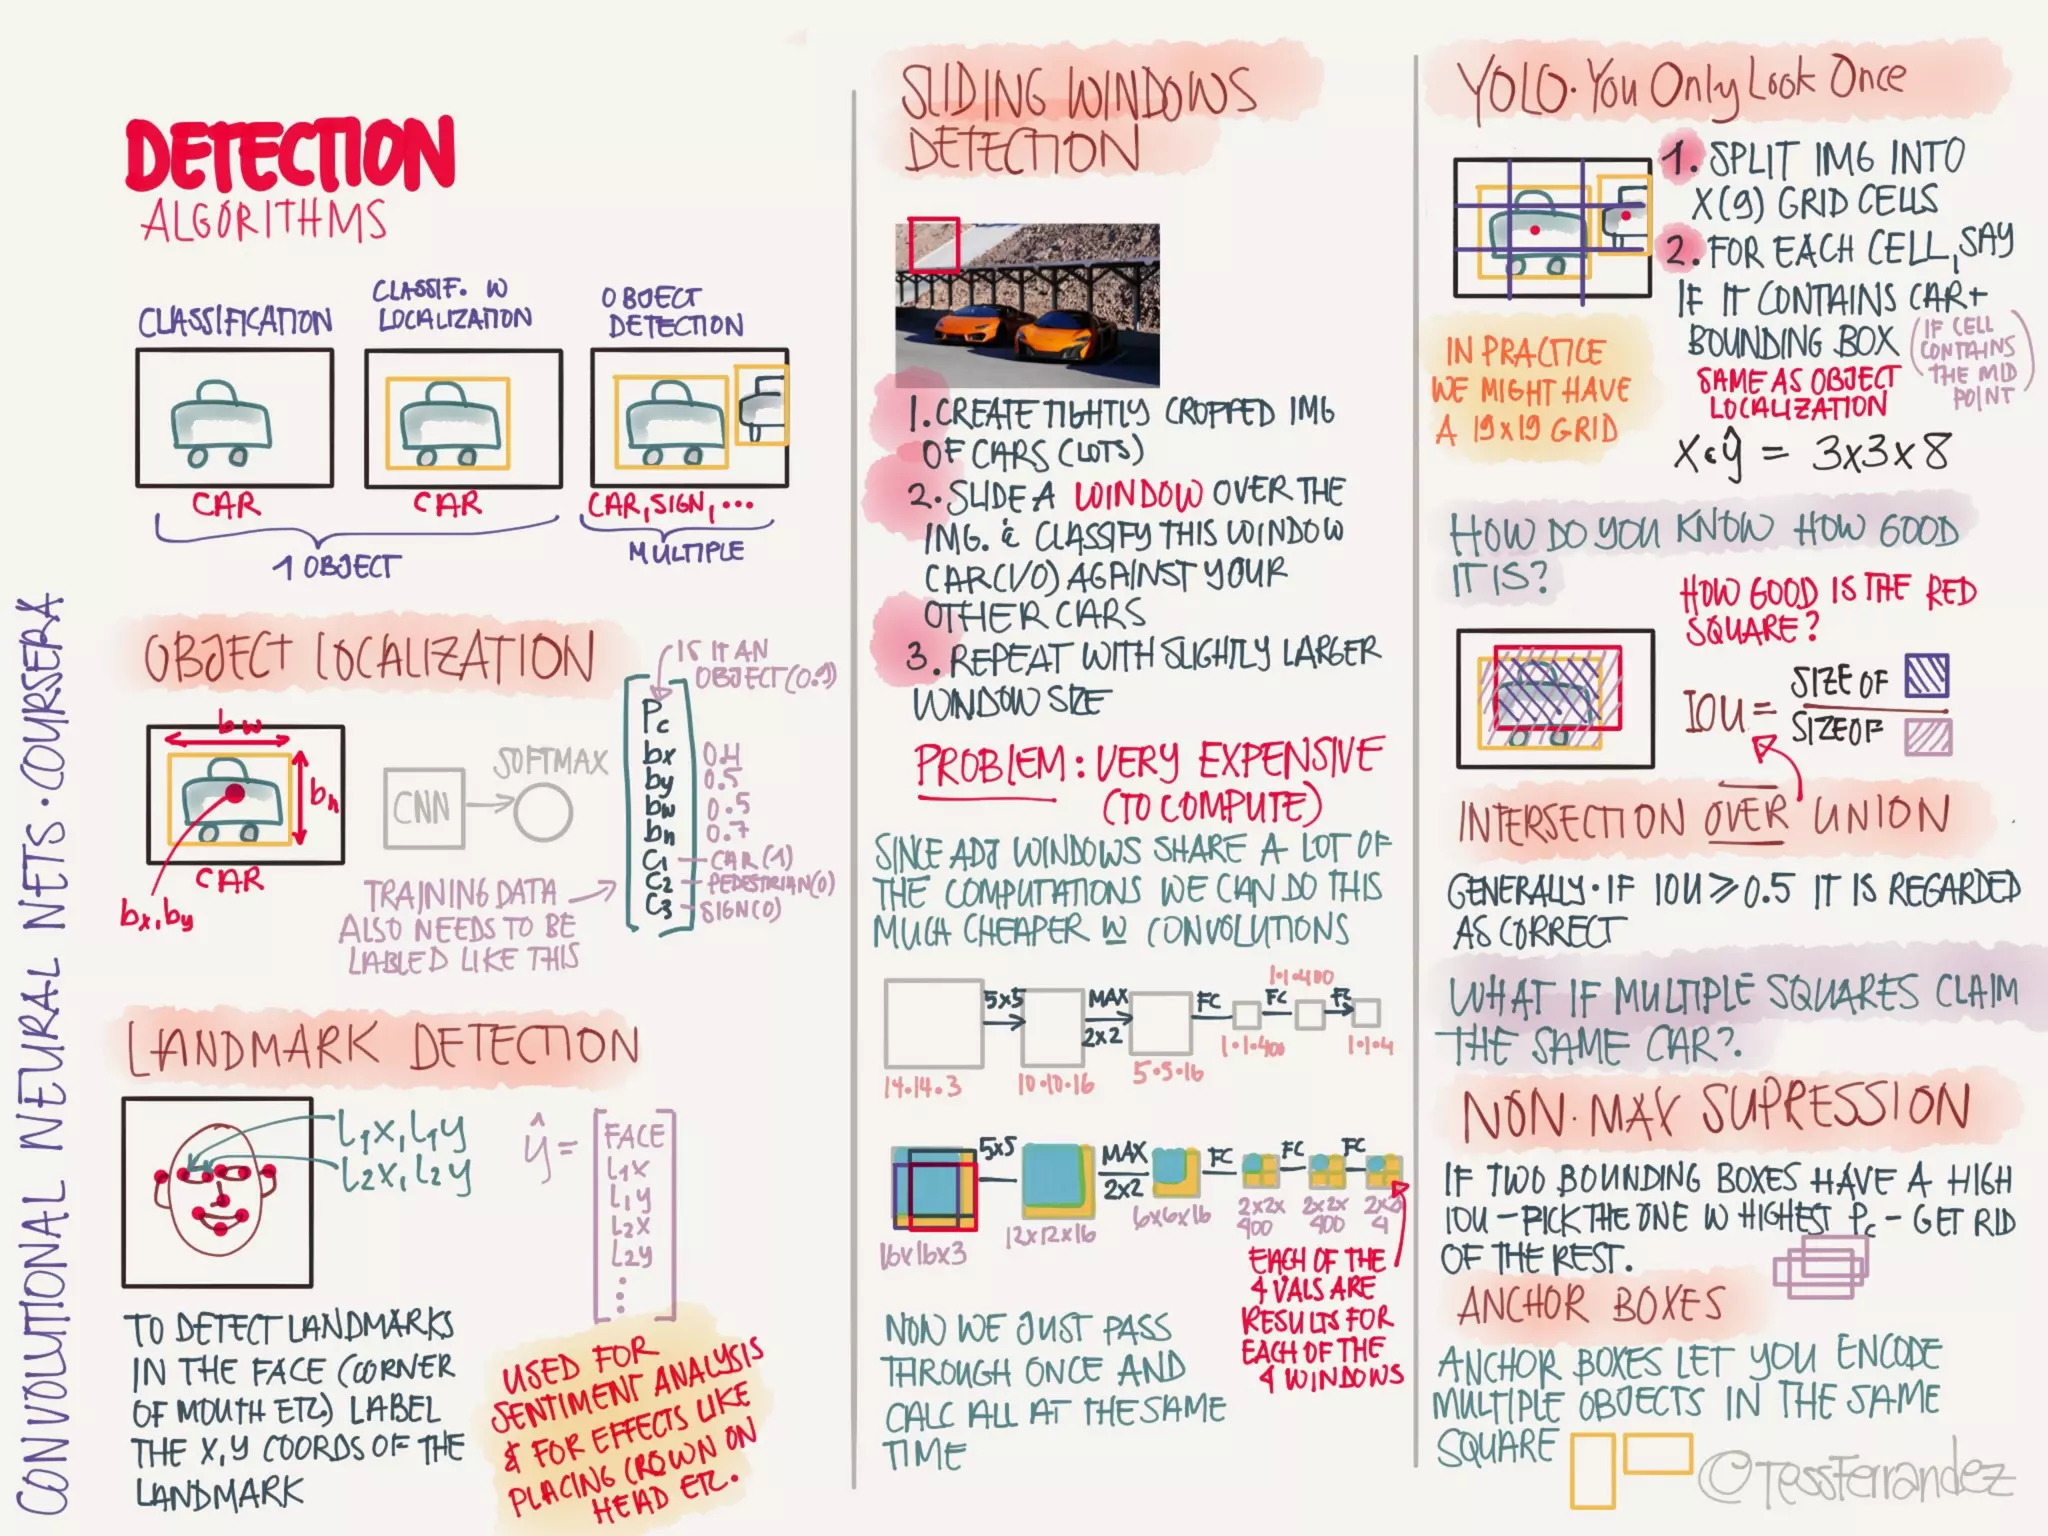 CONVOLUTIONAL NEURAL NETS · COURSERA
DETECTION
ALGORITHMS
CLASSIFICATION
CLASSIF. W
LOCALIZATION
OBJECT
DETECTION
CAR
CAR
CAR, SIGN, ...
1 OBJECT
MULTIPLE
OBJECT LOCALIZATION
bw
bh
CAR
bx, by
CNN
SOFTMAX
IS IT AN
OBJECT (0.9)
Pc
bx 0.4
by 0.5
bw 0.5
bh 0.7
C1 CAR (1)
C2 PEDESTRIAN (0)
C3 SIGN (0)
TRAINING DATA
ALSO NEEDS TO BE
LABLED LIKE THIS
LANDMARK DETECTION
L1x, L1y
L2x, L2y
ŷ =
FACE
L1x
L1y
L2x
L2y
⋮
TO DETECT LANDMARKS
IN THE FACE (CORNER
OF MOUTH ETC) LABEL
THE X,Y COORDS OF THE
LANDMARK
USED FOR
SENTIMENT ANALYSIS
& FOR EFFECTS LIKE
PLACING CROWN ON
HEAD ETC.
SLIDING WINDOWS
DETECTION
1. CREATE TIGHTLY CROPPED IMG
OF CARS (LOTS)
2. SLIDE A WINDOW OVER THE
IMG. & CLASSIFY THIS WINDOW
CAR (1/0) AGAINST YOUR
OTHER CARS
3. REPEAT WITH SLIGHTLY LARGER
WINDOW SIZE
PROBLEM: VERY EXPENSIVE
(TO COMPUTE)
SINCE ADJ WINDOWS SHARE A LOT OF
THE COMPUTATIONS WE CAN DO THIS
MUCH CHEAPER W CONVOLUTIONS
5x5
MAX
2x2
FC
FC
FC
1·1·400
14·14·3
10·10·16
5·5·16
1·1·400
1·1·4
5x5
MAX
2x2
FC
FC
FC
16x16x3
12x12x16
6x6x16
2x2x
400
2x2x
400
2x2x
4
EACH OF THE
4 VALS ARE
RESULTS FOR
EACH OF THE
4 WINDOWS
NOW WE JUST PASS
THROUGH ONCE AND
CALC ALL AT THE SAME
TIME
YOLO · You Only Look Once
1. SPLIT IMG INTO
X(9) GRID CELLS
2. FOR EACH CELL, SAY
IF IT CONTAINS CAR +
BOUNDING BOX
(IF CELL
CONTAINS
THE MID
POINT)
SAME AS OBJECT
LOCALIZATION
IN PRACTICE
WE MIGHT HAVE
A 19x19 GRID
X & ŷ = 3x3x8
HOW DO YOU KNOW HOW GOOD
IT IS?
HOW GOOD IS THE RED
SQUARE?
IOU =
SIZE OF
SIZE OF
INTERSECTION OVER UNION
GENERALLY · IF IOU ≥ 0.5 IT IS REGARDED
AS CORRECT
WHAT IF MULTIPLE SQUARES CLAIM
THE SAME CAR?
NON·MAX SUPRESSION
IF TWO BOUNDING BOXES HAVE A HIGH
IOU – PICK THE ONE W HIGHEST Pc – GET RID
OF THE REST.
ANCHOR BOXES
ANCHOR BOXES LET YOU ENCODE
MULTIPLE OBJECTS IN THE SAME
SQUARE
©TessFerrandez